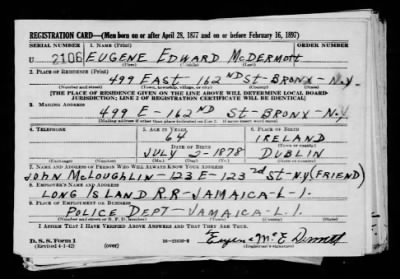 REGISTRATION CARD—(Men born on or after April 28, 1877 and on or before February 16, 1897)
SERIAL NUMBER 1. NAME (Print) ORDER NUMBER
U 2106 EUGENE EDWARD McDERMOTT
(First) (Middle) (Last)
2. PLACE OF RESIDENCE (Print)
499 EAST-162ND ST-BRONX-N.Y.
(Number and street) (Town, township, village, or city) (County) (State)
[THE PLACE OF RESIDENCE GIVEN ON THE LINE ABOVE WILL DETERMINE LOCAL BOARD
JURISDICTION; LINE 2 OF REGISTRATION CERTIFICATE WILL BE IDENTICAL]
3. MAILING ADDRESS
499 E-162ND ST-BRONX-N.Y.
[Mailing address if other than place indicated on line 2. If same insert word same]
4. TELEPHONE 5. AGE IN YEARS 6. PLACE OF BIRTH
64 IRELAND
DATE OF BIRTH
JULY 2-1878 DUBLIN
(Exchange) (Number) (Mo.) (Day) (Yr.) (State or country)
7. NAME AND ADDRESS OF PERSON WHO WILL ALWAYS KNOW YOUR ADDRESS
JOHN McLOUGHLIN-123 E-123rd ST-N.Y. (FRIEND)
8. EMPLOYER'S NAME AND ADDRESS
LONG ISLAND R.R-JAMAICA-L-I.
9. PLACE OF EMPLOYMENT OR BUSINESS
POLICE DEPT-JAMAICA-L.I.
(Number and street or R. F. D. number) (Town) (County) (State)
I AFFIRM THAT I HAVE VERIFIED ABOVE ANSWERS AND THAT THEY ARE TRUE.
D. S. S. Form 1
(Revised 4-1-42) (over)